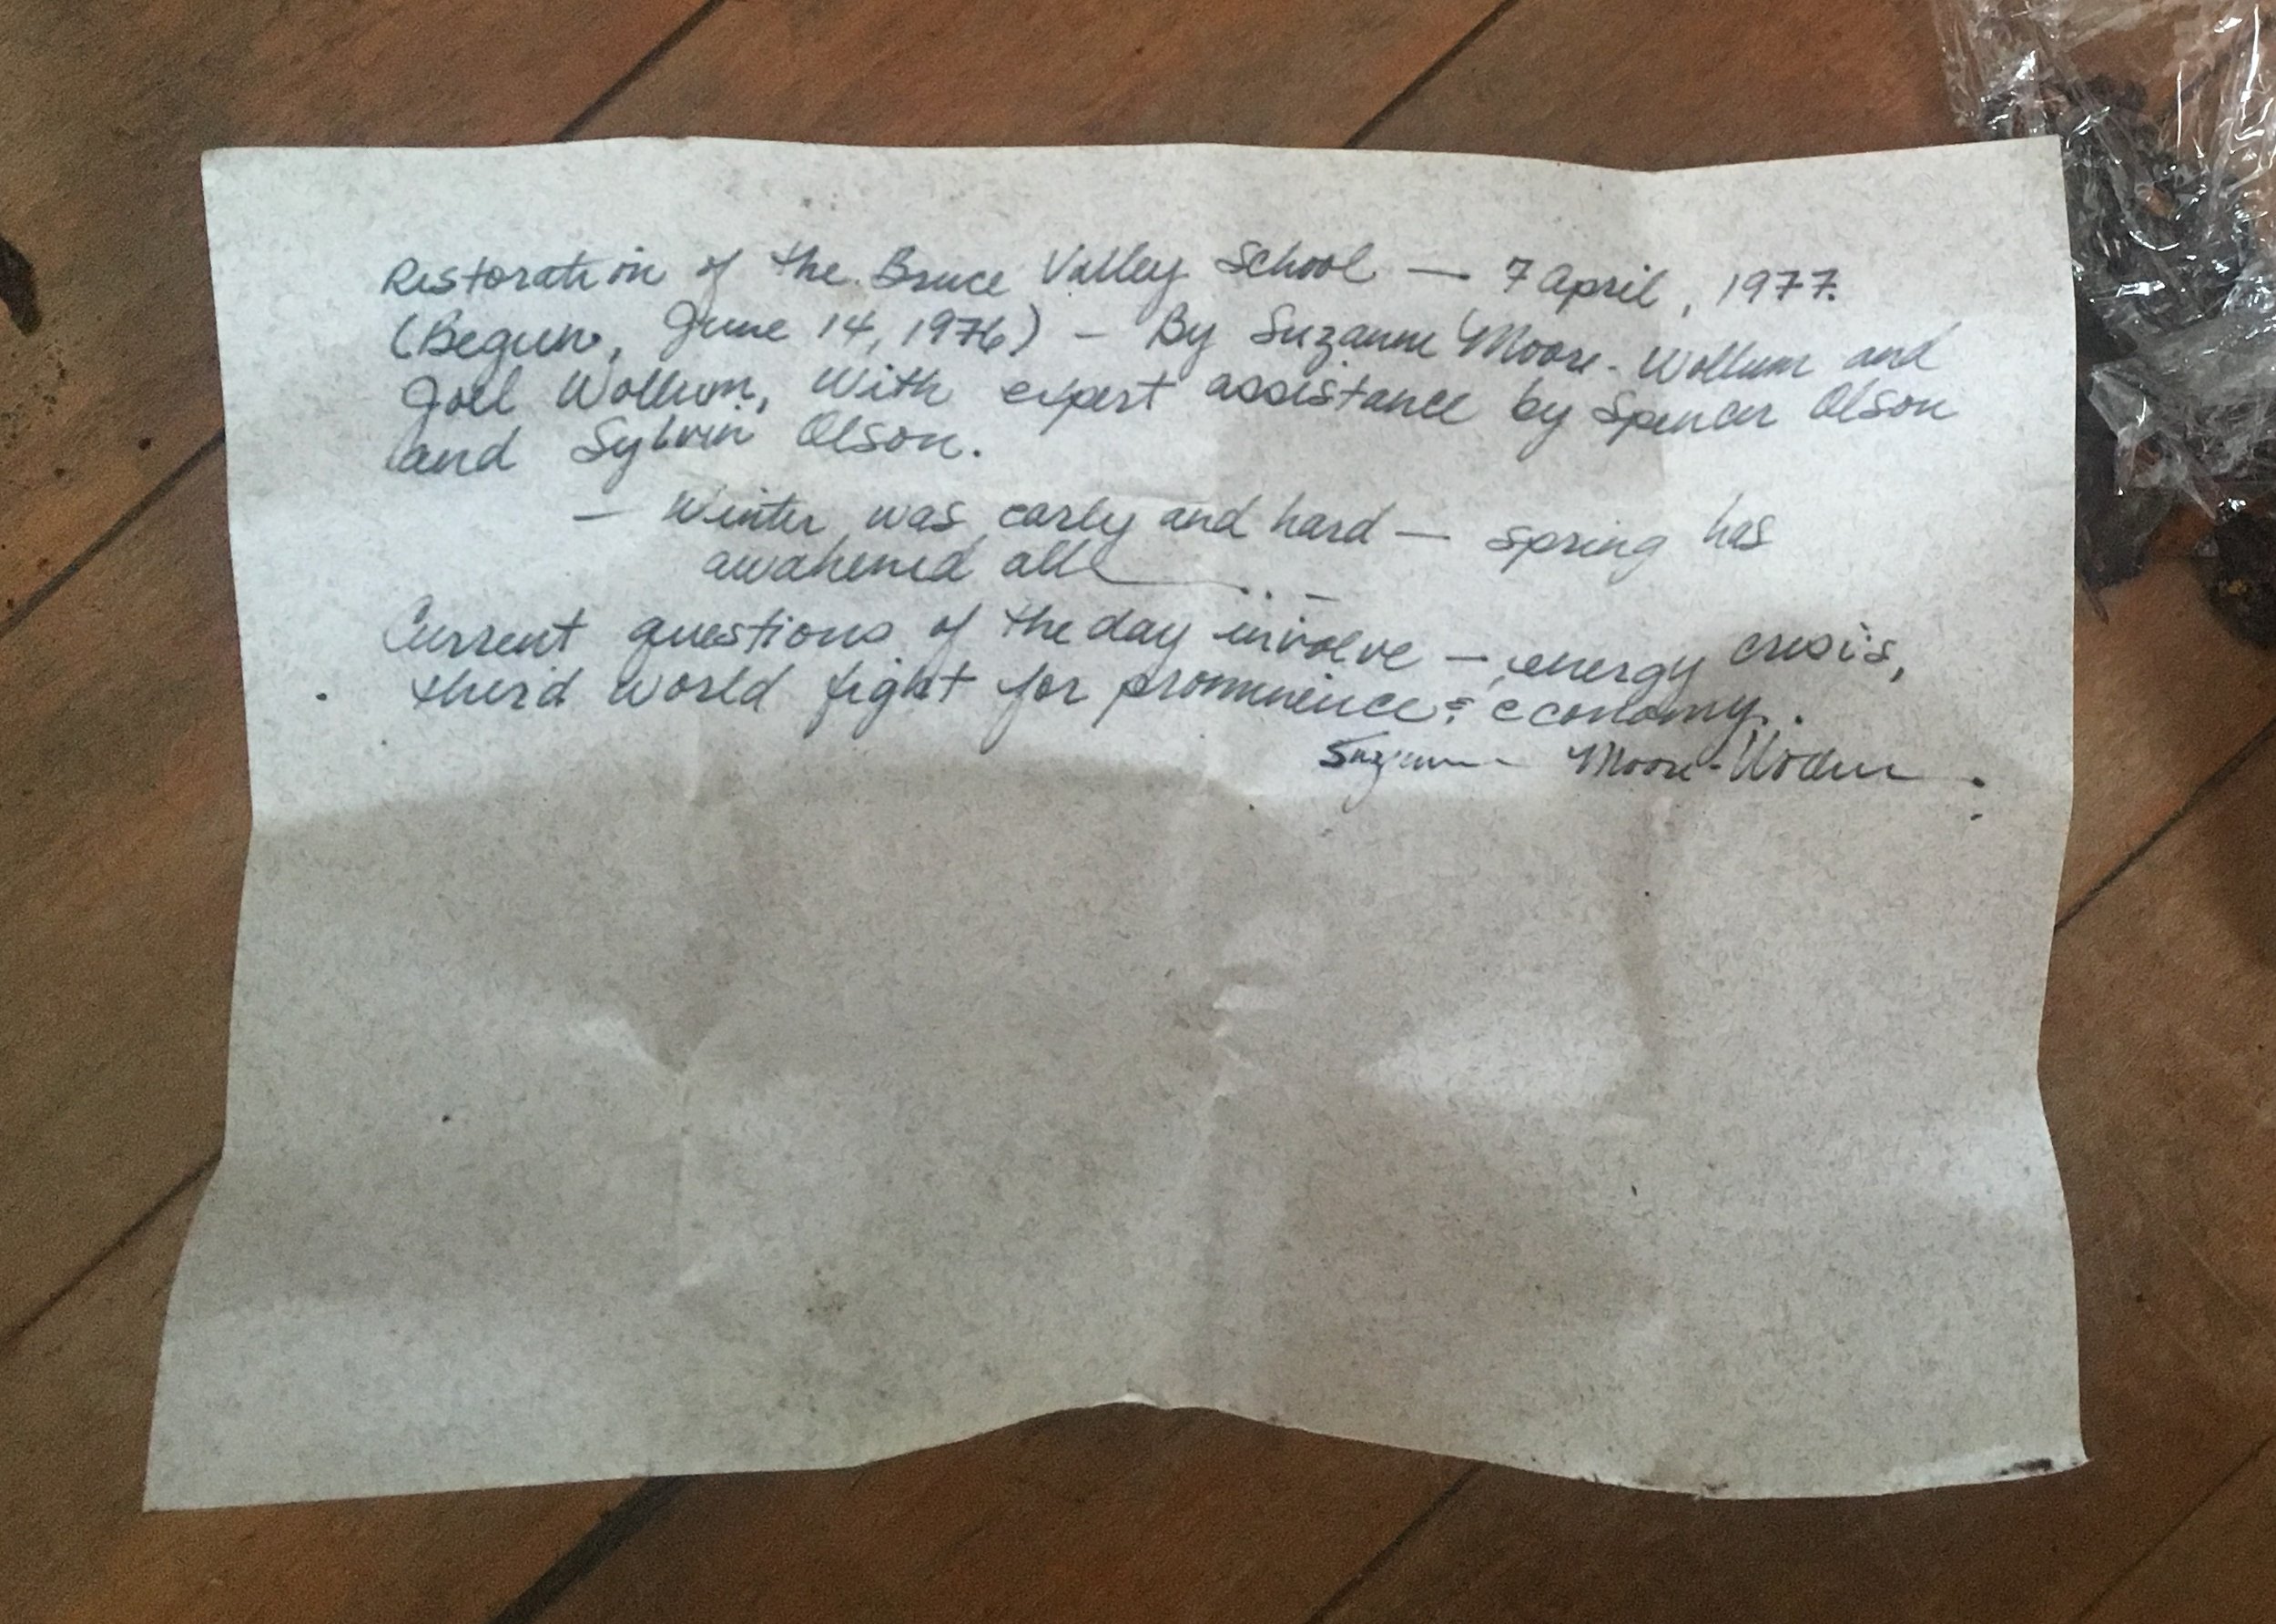 Restoration of the Bruce Valley School — 7 April, 1977.
(Begun, June 14, 1976) - By Suzanne Moore-Wollum and
Joel Wollum, With expert assistance by Spencer Olson
and Sylvin Olson.
— Winter was early and hard — spring has
awakened all ... —
Current questions of the day involve — energy crisis,
third world fight for prominence & economy.
Suzanne Moore-Wollum